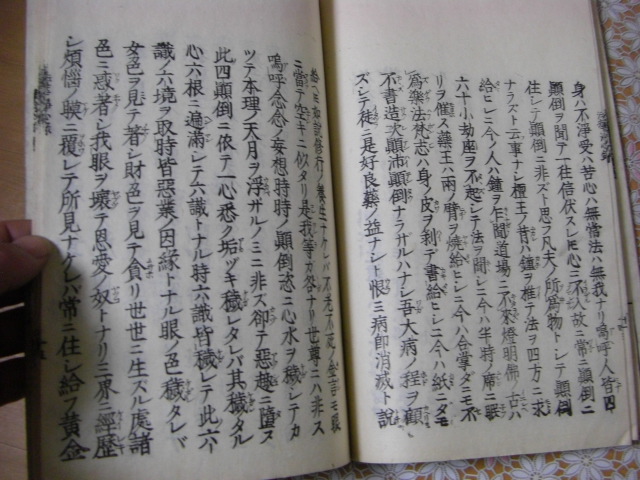 身ハ不淨受ハ苦心ハ無常法ハ無我ナリ嗚呼人皆四
顛倒ヲ聞テ一往信伏スレ𪜈心ニ不入故ニ常ニ顛倒ニ
住シテ顛倒ニ非ズト思フ凡夫ノ所爲物トシテ顛倒
ナラスト云事ナシ檀王ノ昔ハ鐘ヲ推テ法ヲ四方ニ求
給ヒシニ今ノ人ハ鐘ヲ乍聞道場ニ不來燈明佛ノ古ハ
六十小劫座ヲ不起シテ法ヲ聞シニ今ハ半時ノ席ニ眠
リヲ催ス藥王ハ兩ノ臂ヲ燒給ヒシニ今ハ合掌タモ不
爲樂法梵志ハ身ノ皮ヲ利テ書給ヒシニ今ハ紙ニダモ
不書造次顛沛顛倒ナラザルハナシ吾大病ノ程ヲ顧
ズシテ徒ニ是好良藥ノ益ナシト恨ミ病即消滅ト説
給ヘ𪜈如説修行ノ養生ナケレバ不老不死ノ金言モ眼
ニ當テ空キニ似タリ是我等カ咎ナリ世尊ニハ非ス
嗚呼念念ノ妄想時時ノ顛倒恣ニ心水ヲ穢シテカ
ツテ本理ノ天月ヲ浮ザルノミニ非ズ卻テ惡趣ニ墮ス
此四顛倒ニ依テ一心悉ク垢ヅキ穢レタレバ其穢タル
心六根ニ遍滿シテ六識トナル時六識皆穢レテ此六
識ノ六境ヲ取時皆惡業ノ因緣トナル眼ノ色穢タレバ
女色ヲ見テ著シ財色ヲ見テ貪リ世世ニ生スル處諸
色ニ惑著シ我眼ヲ壞テ恩愛ノ奴トナリ三界ニ經歷
シ煩惱ノ膜ニ覆レテ所見ナケレバ常ニ住シ給フ黃金